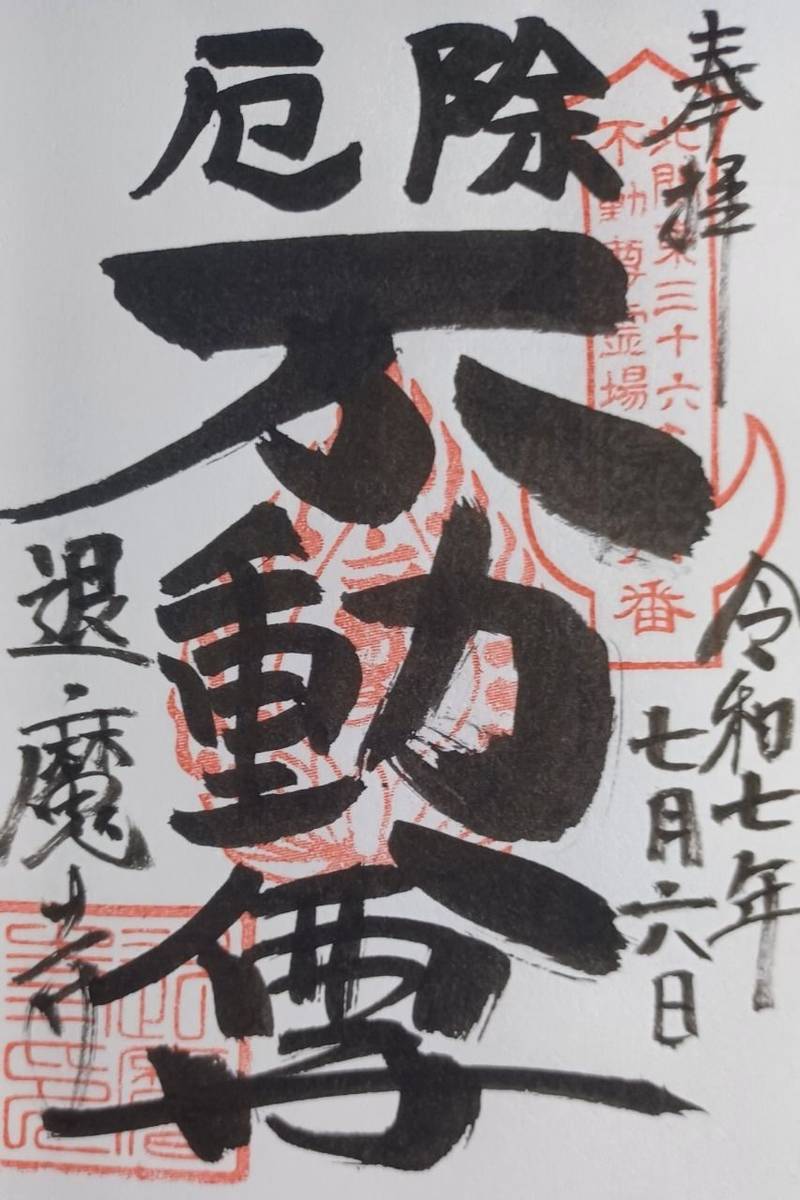 奉拝
北関東三十六
不動尊霊場
番
除厄
不動尊
令和七年
七月六日
退魔寺